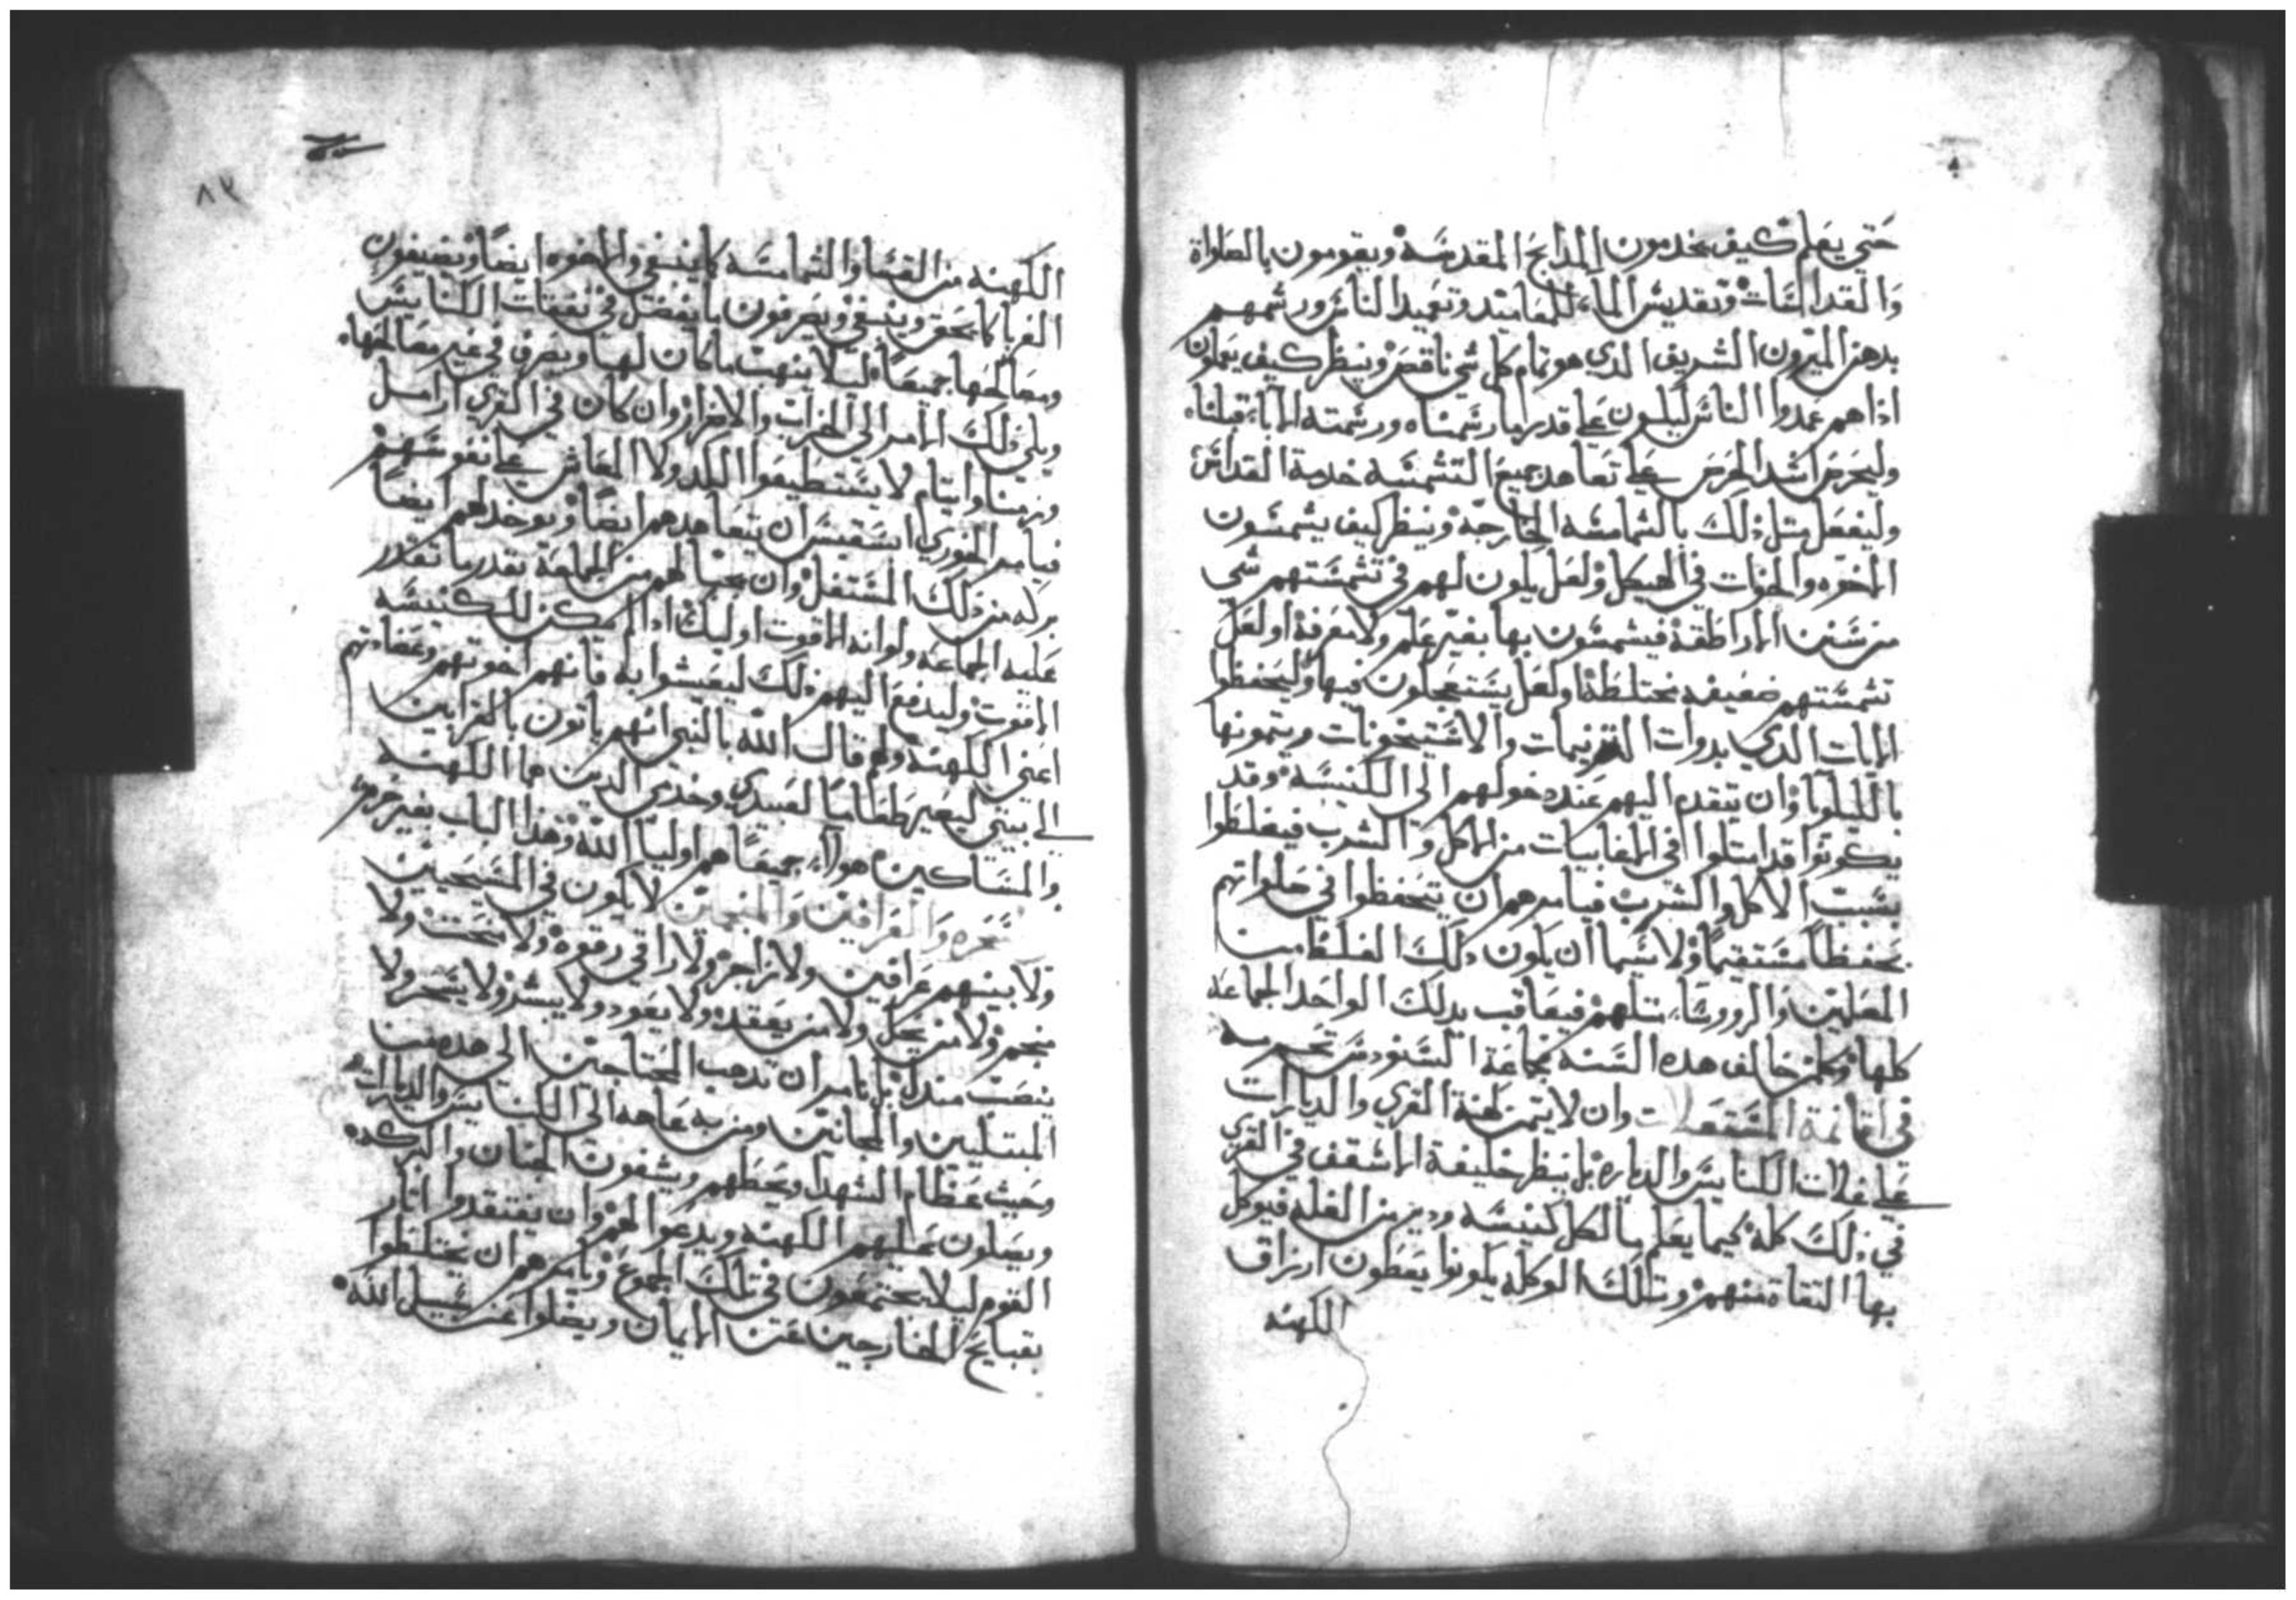 حتي يعلم كيف يخدمون المذابح المقدسة ويقومون بالصلواة
والقداسات وتقديس الماء للمعاميد وتعميد الناس ورشمهم
بدهن الميرون الشريف الدي هو تمام كل شي ناقص وينظر كيف يعملون
اذا هم عمدوا الناس ليكون علي قدر ما رشمناه ورشمته الاباء قبلنا
وليحرص اشد الحرص علي تعاهد جميع التشمسه خدمة القداس
وليفعل مثل ذلك بالشمامسه الخارجة وينظر كيف يشمسون
الاخوه والاخوات في الهيكل ولعل يكون لهم في تشمستهم شي
من سنن الاراطقة فيشمسون بها بغير علم ولا معرفة او لعل
تشمستهم ضعيفه مختلطة او لعل يستعجلون فيها وليحفظوا
الايات الدي يدوات الترنيمات والاستيخونات ويتمونها
بالليلويا وان يتقدم اليهم عند دخولهم الى الكنيسة وقد
يكونوا قد امتلوا في من الاكل والشرب فيغلطوا
بسبب الاكل والشرب فيامرهم ان يتحفظوا في صلواتهم
تحفظا مستقيما ولا سيما ان يكون ذلك الغلط من
المعلمين والرووسا مثلهم فيعاقب بدلك الواحد الجماعة
كلها وكلمن خالف هده السنه
في اقامة وان لا كهنة القري والديارات
علي غلات الكنايس والدياره بل ينظر خليفة الاسقف في القري
في ذلك كله كيما يعلم ما لكل كنيسه ودير من الغله فيوكل
بها التقاة منهم وتلك الوكله يكونوا يعطون ارزاق
الكهنه
٨٢
الكهنه من القسا والشمامسه كما ينبغي والاخوه ايضا ويضيفون
الغربا كما يحق وينبغي ويصرفون ما يفضل في نفقات الكنايس
ومصالحها جميعا ليلا ينهب ما كان لها ويصرف في غير مصالحها
ويلي ذلك الامر الي وان كان في القري ارامل
وزمنا وايتام لا يستطيعوا الكد ولا المعاش علي نفوسهم
فيامر الخوري ابسقبس ان يتعاهدهم ايضا ويوخد لهم ايضا
بركه من ذلك المستغل وان يجبا لهم من الجماعة بقدر ما تقدر
عليه الجماعه ولو انه الاقوت اوليك اذا لم يمكن للكنيسه
القوت وليدفع اليهم ذلك ليعيشوا به فانهم اخوتهم
اعني الكهنة ولهم قال الله بالنبي انهم ياتون بالقرابين
الي بيتي ليصير طعاما لعبيدي وخدمي الدين هما الكهنه
والمساكين هولاء جميعا هم اوليا الله وهذا الباب بغير حرم
سحره والعرافين والمنجمين لا يكون في المسيحيين
ولا بينهم عرافين ولا زاجر ولا راقي رقوه ولا ولا
منجم ولا من يحل ولا من يعقد ولا يعود ولا يبشر ولا يسحر ولا
ينصب مندل بل نامر ان تدهب المحتاجين الي هده من
المبتليين والمجانين ومن به عاهه الى الكنايس والديارات
وحيث عظام الشهدا ويشفون
ويصلون عليهم الكهنه ويدعوا لهم وان يفتقدوا اثار
القوم ليلا يجتمعون في تلك الجموع ويامرهم ان يختلطوا
بقبايح الخارجين عن الايمان ويضلوا عن سبيل الله